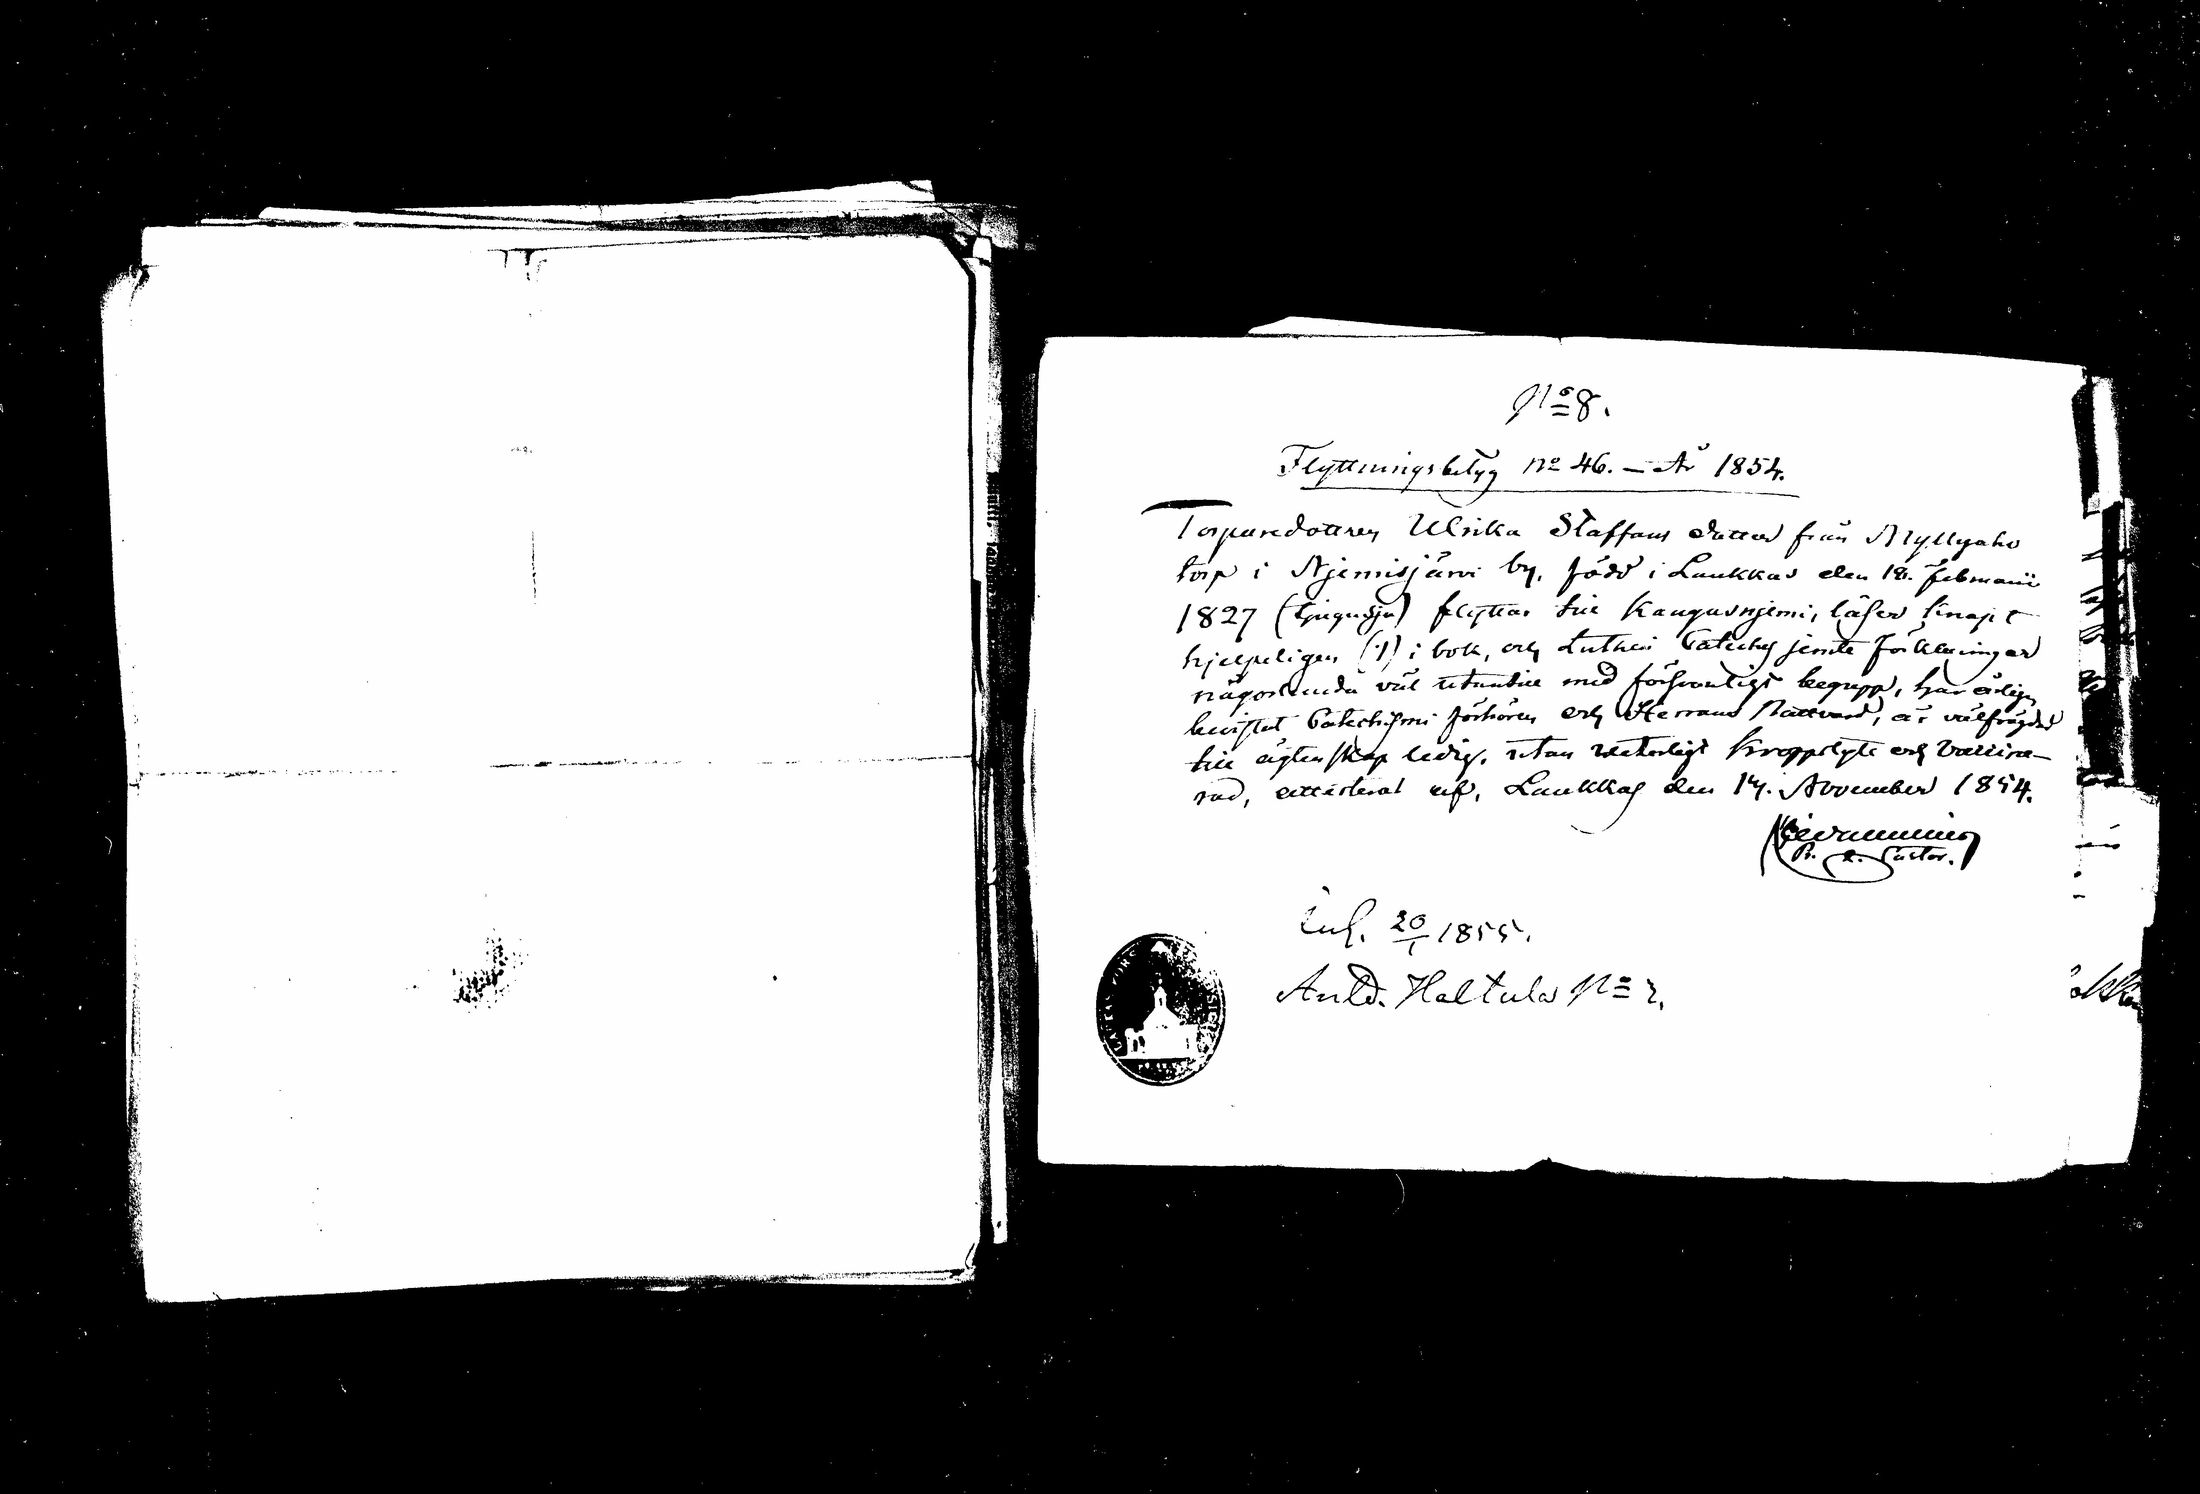 No 8.
Flyttningsbetyg No 46. – År 1854.
Torparedottren Ulrika Staffans dotter från Myllyaho
torp i Njemisjärvi by, född i Laukkas den 18. februarii
1827 (tjugusju) flyttar till Kangasnjemi, läser knapt
hjelpeligen (1) i bok, och Lutheri Cateches jemte förklaringar
någorlunda väl utantill med försvarligt begrepp, har årligen
bevistat Catechismi förhören och Herrans Nattvard, är välfrägdad
till ägtenskap ledig, utan veterligt kroppslyte och vaccine-
rad, attesterat af, Laukkas den 14. November 1854.
Pastor.
Inl. 20/1 1855.
Antd. Haltula No 2.